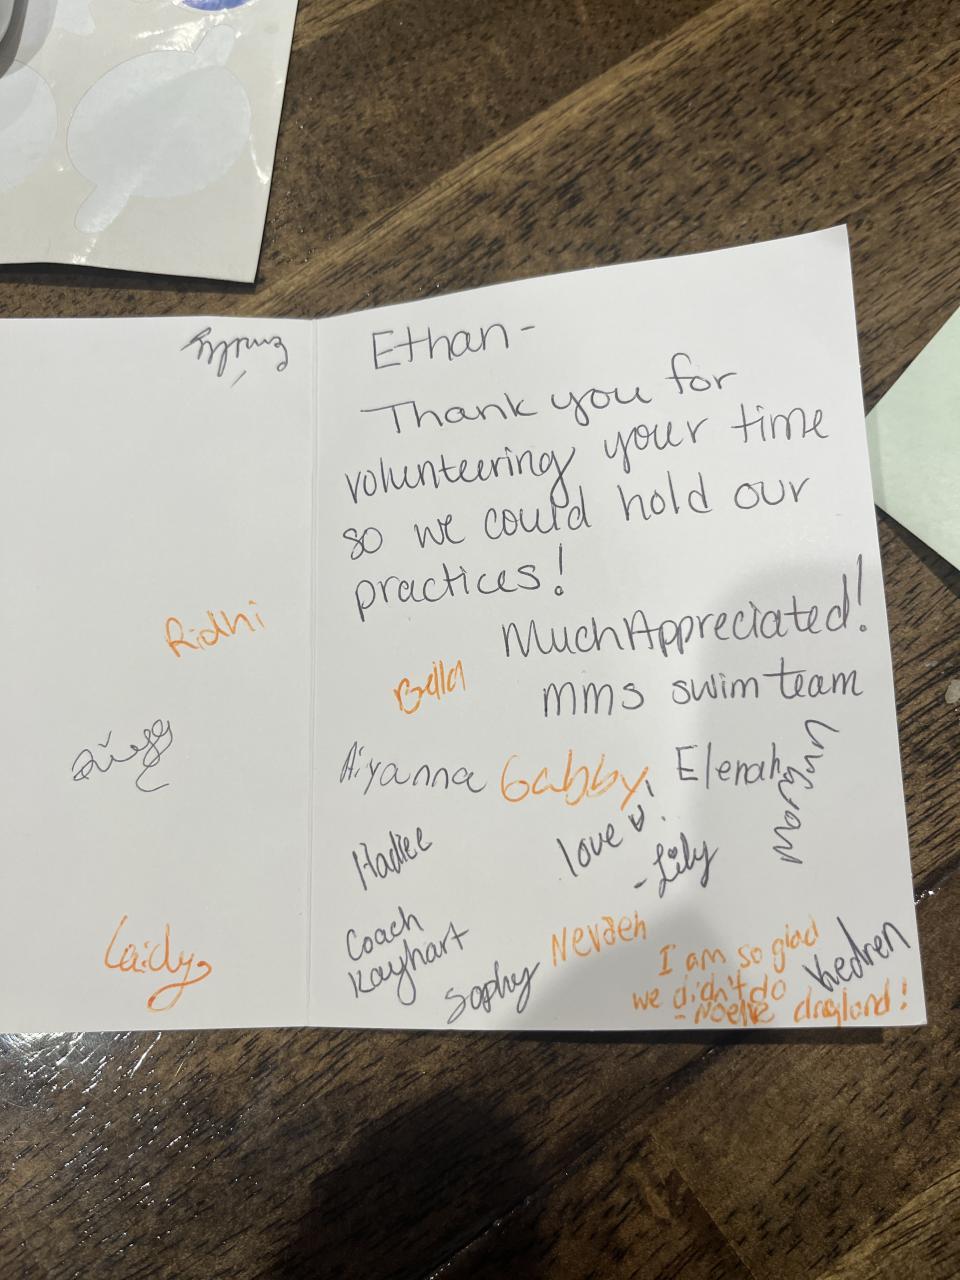 Emily
Ethan-
Thank you for
volunteering your time
so we could hold our
practices!
Much Appreciated!
mms swim team
Ridhi
Bella
Aiyanna
Gabby
Elenah
Hadlee
love
-Lily
Laidy
Coach
Kayhart
Sophy
Nevaeh
I am so glad
we didn't do
dryland!
-Noelle
Kedren